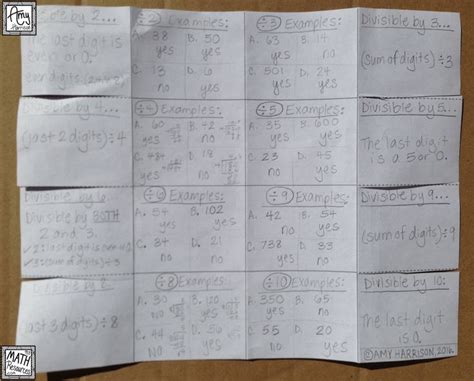 Amy
Divisible by 2...
The last digit is
even or 0.
÷2 Examples:
A. 38 B. 50
yes yes
C. 13 D. 6
no yes
÷3 Examples:
A. 63 B. 14
yes no
C. 501 D. 24
yes yes
Divisible by 3...
(sum of digits)÷3
Divisible by 4...
(last 2 digits)÷4
÷4 Examples:
A. 60 B. 42
yes no
C. 484 D. 18
yes no
÷5 Examples:
A. 35 B. 600
yes yes
C. 23 D. 45
no yes
Divisible by 5...
The last digit
is a 5 or 0.
Divisible by 6
Divisible by BOTH
2 and 3.
(sum of digits)
÷6 Examples:
A. 54 B. 102
yes yes
C. 34 D. 21
no no
÷9 Examples:
A. 42 B. 54
no yes
C. 738 D. 33
yes no
Divisible by 9...
(sum of digits)÷9
Divisible by 8...
(last 3 digits)÷8
÷8 Examples:
A. 30 B. 120
no yes
C. 44 D. 56
no yes
÷10 Examples:
A. 350 B. 65
yes no
C. 55 D. 20
no yes
Divisible by 10:
The last digit
is 0.
©AMY HARRISON, 2016.
MATH
Resources